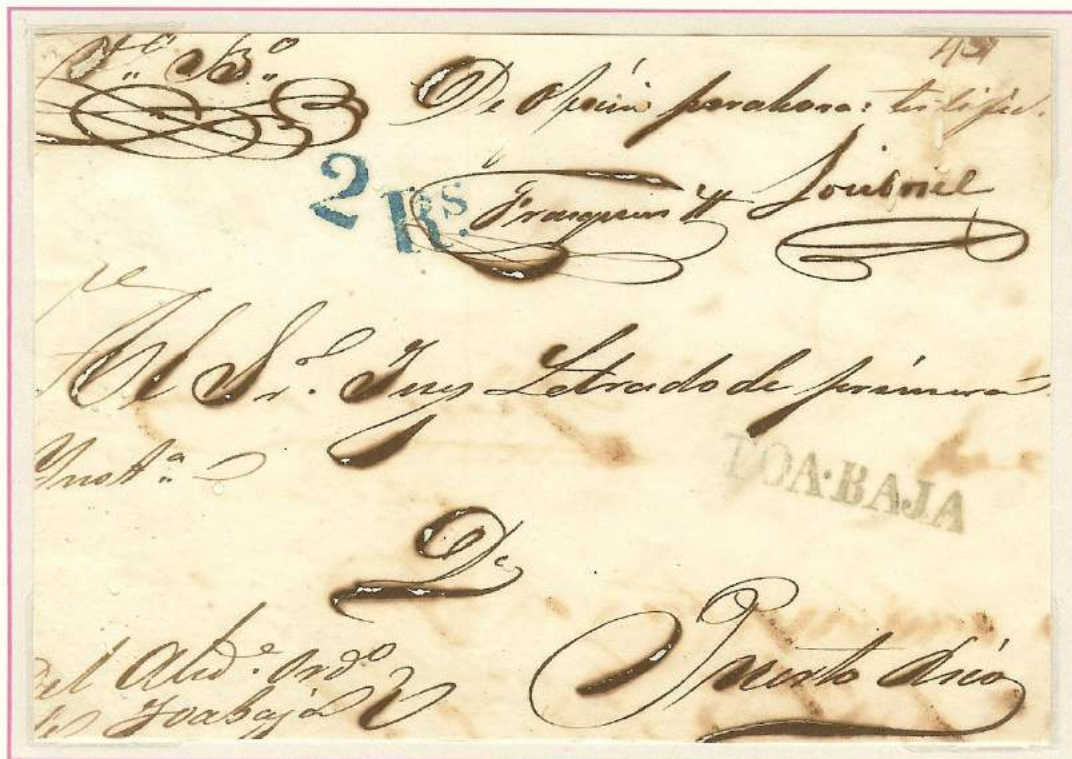 Vto. Bo.
De oficio por ahora:
2 Rs.
Al Sr. Juez Letrado de primera
Ynsta.
TOA·BAJA
De
Puerto Rico
Del Alcde. Ordo.
de Toabaja